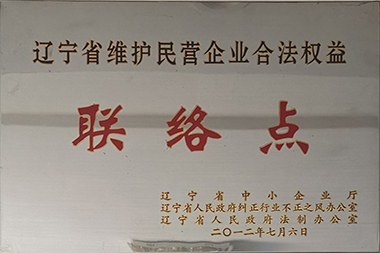 辽宁省维护民营企业合法权益
联络点
辽宁省中小企业厅
辽宁省人民政府纠正行业不正之风办公室
辽宁省人民政府法制办公室
二〇一二年七月六日